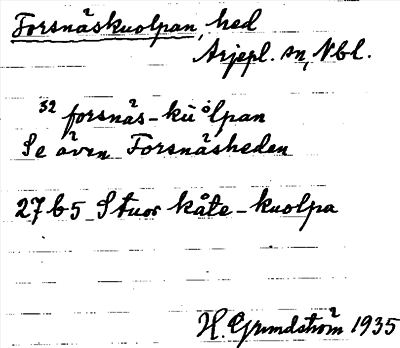 Forsnäskuolpan, hed
Arjepl. sn, Nbl.
32 forsnäs-kùålpan
Se även Forsnäsheden
2765 Stuor kåte-kuolpa
H. Grundström 1935